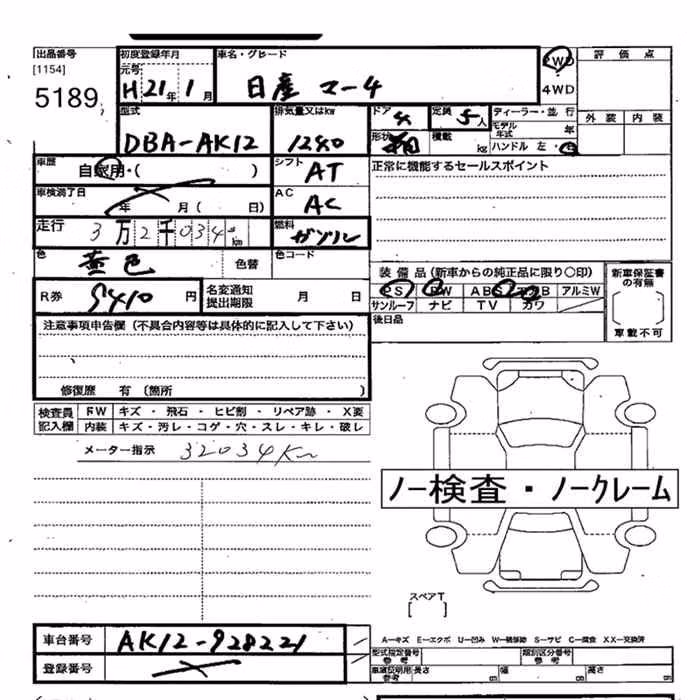 出品番号
[1154]
5189
初度登録年月
元号
H 21 年 1 月
車名・グレード
日産 マーチ
2WD
4WD
評価点
外装 内装
型式
DBA-AK12
排気量又はkw
1240
ドア
定員 5 人
形状
積載 kg
ディーラー・並行
モデル年式 年
ハンドル 左・右
車歴
自家用・( )
シフト
AT
正常に機能するセールスポイント
車検満了日
年 月( 日)
AC
AC
走行
3万2千034 km
燃料
ガソリン
色
色替
色コード
R券
9410 円
名変通知
提出期限
月 日
装備品(新車からの純正品に限り○印)
PS PW ABS エアB アルミW
サンルーフ ナビ TV カワ
新車保証書の有無
〔 〕
車載不可
後日品
注意事項申告欄(不具合内容等は具体的に記入して下さい)
修復歴 有〔箇所 〕
検査員記入欄
FW キズ・飛石・ヒビ割・リペア跡・X要
内装 キズ・汚レ・コゲ・穴・スレ・キレ・破レ
メーター指示 32034Km
ノー検査・ノークレーム
スペアT
[ ]
車台番号
AK12-928221
登録番号
A－キズ E－エクボ U－凹み W－補修跡 S－サビ C－腐食 XX－交換済
型式指定番号
参考
類別区分番号
参考
車庫証明用
参考
長さ 幅 高さ